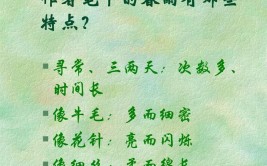 作者笔下的春雨有哪些
特点？
寻常、三两天：次数多、
时间长
像牛毛：多而细密
像花针：亮而闪烁
像细丝：柔而绵长